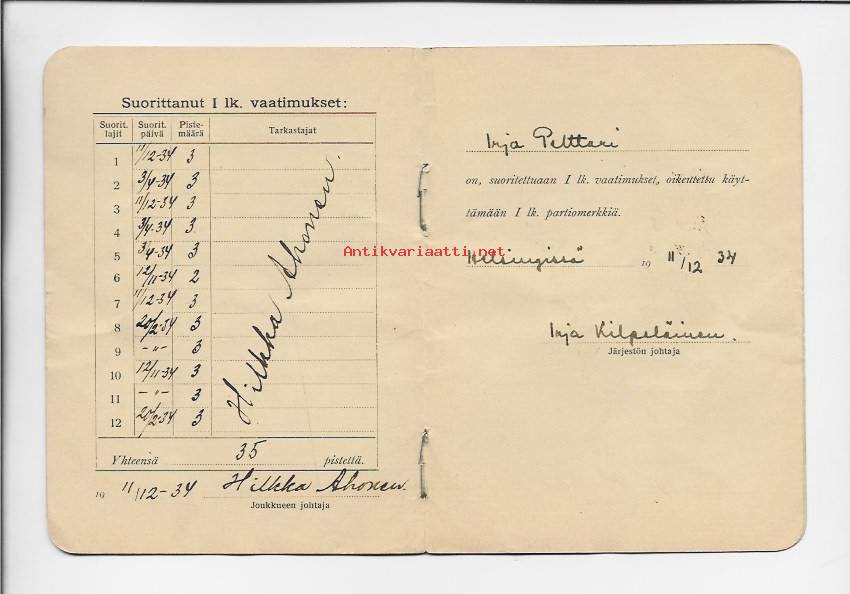 Suorittanut I lk. vaatimukset:
Suorit. lajit Suorit. päivä Piste- määrä Tarkastajat
1 11/12-34 3
2 3/4-34 3
3 11/12-34 3
4 3/4-34 3
5 3/4-34 3
6 12/11-34 2
7 11/12-34 3
8 20/2-34 3
9 -"- 3
10 12/11-34 3
11 -"- 3
12 20/2-34 3
Hilkka Ahonen.
Yhteensä 35 pistettä.
19 11/12-34 Hilkka Ahonen.
Joukkueen johtaja
Irja Pelttari
on, suoritettuaan I lk. vaatimukset, oikeutettu käyt-
tämään I lk. partiomerkkiä.
Antikvariaatti.net
Helsingissä 19 11/12 34
Irja Kilpeläinen.
Järjestön johtaja